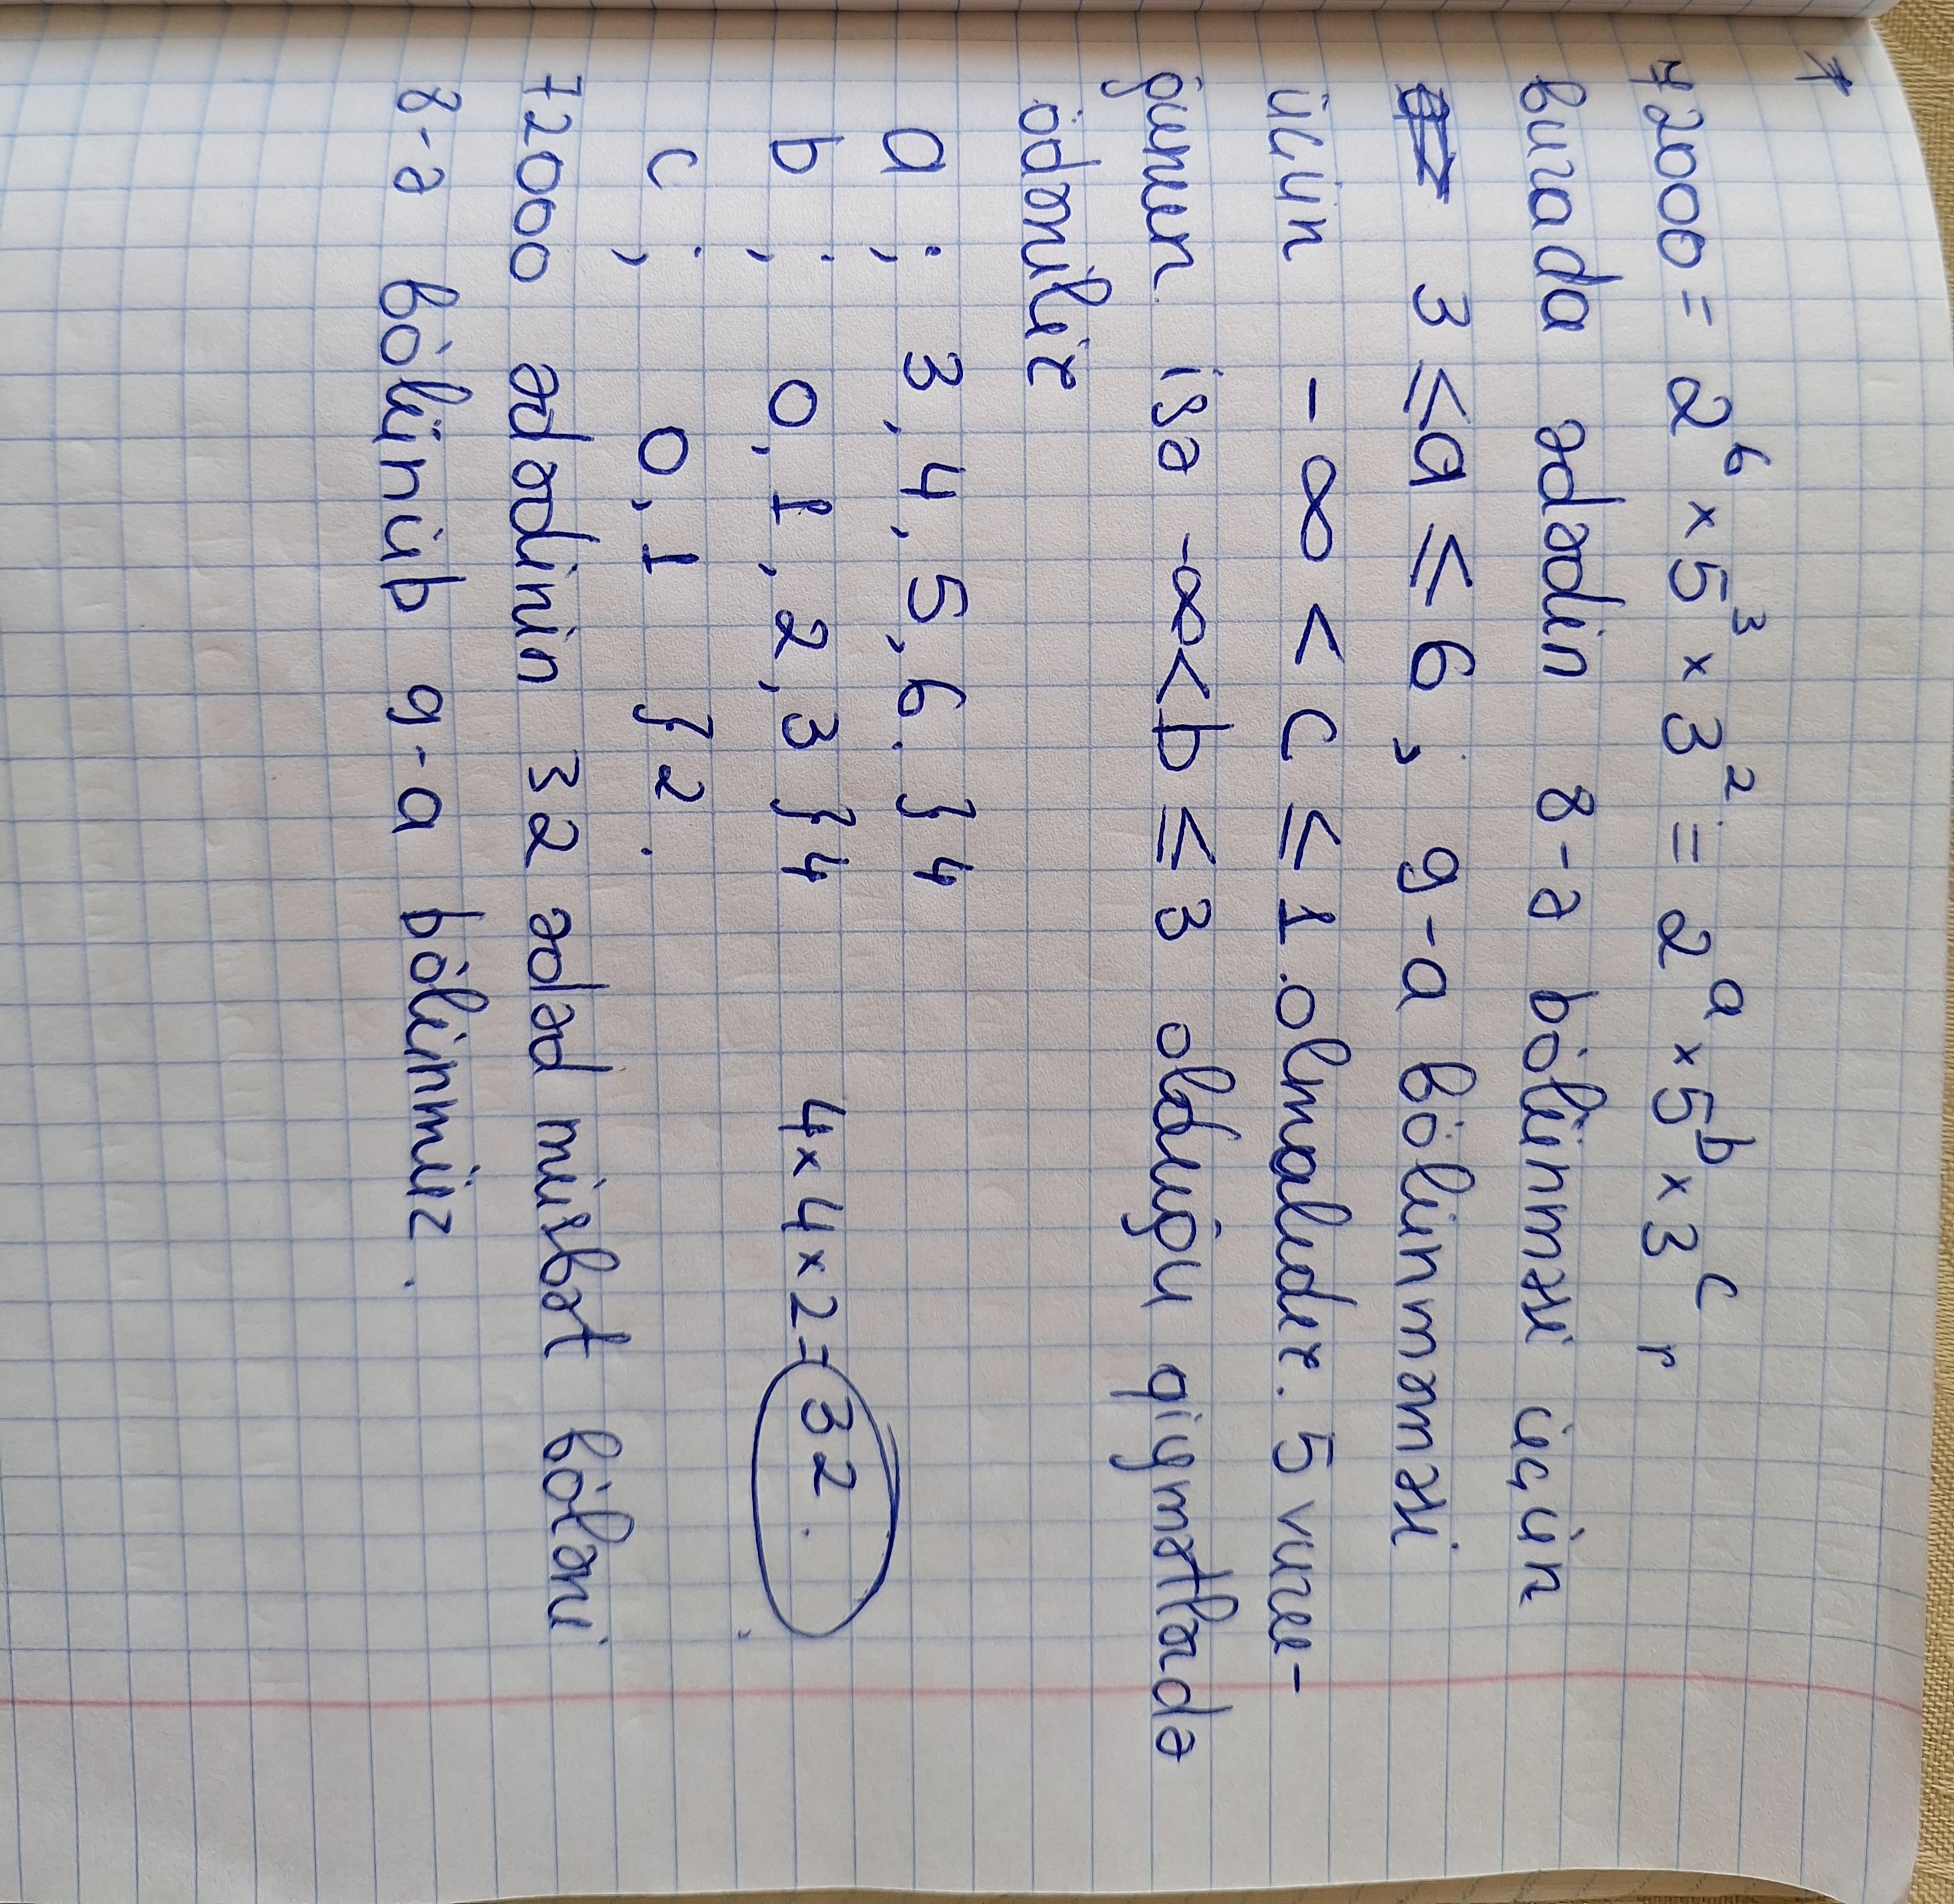 1
72000 = 2^6 × 5^3 × 3^2 = 2^a × 5^b × 3^c,
burada ədədin 8-ə bölünməsi üçün
3 ≤ a ≤ 6, 9-a bölünməməsi
üçün -∞ < c ≤ 1 olmalıdır. 5 vuru-
ğunun isə -∞ < b ≤ 3 olduğu qiymətlədə
ödənilir
a ; 3, 4, 5, 6. } 4
b ; 0, 1, 2, 3 } 4 4 × 4 × 2 = 32.
c ; 0, 1 } 2.
72000 ədədinin 32 ədəd müsbət böləni
8-ə bölünüb 9-a bölünmür.